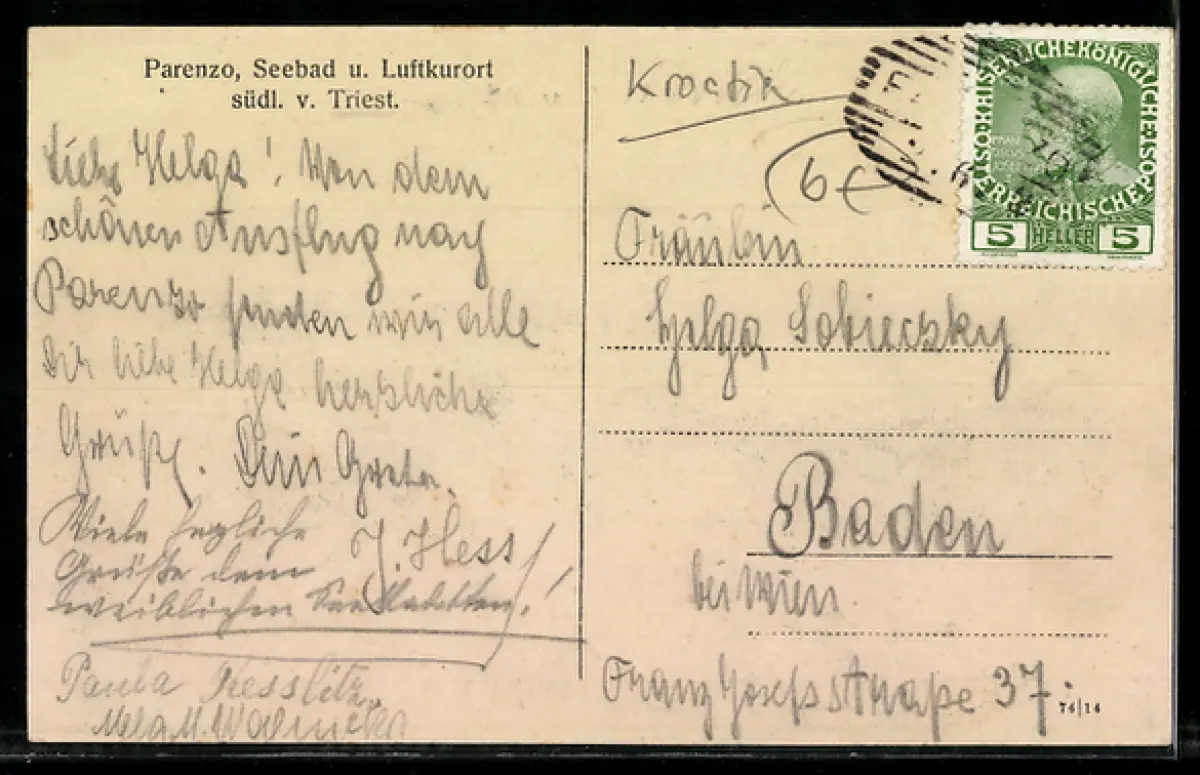 Parenzo, Seebad u. Luftkurort
südl. v. Triest.
Liebe Helga! Von dem
schönen Ausflug nach
Parenzo senden wir alle
Dir liebe Helga herzliche
Grüße. Dein Greta.
Viele herzliche
Grüße dem
weiblichen Seekadetten!
J. Hess
Paula Kesslitz
Kroatia
6€
Fräulein
Helga Sobieczky
Baden
bei Wien.
Franz Josefsstraße 37.
74|14
KAISERLICHEKÖNIGLICHE
ÖSTERREICHISCHE POST
5 HELLER 5